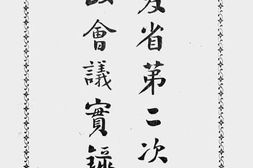 省第二次
會議實錄